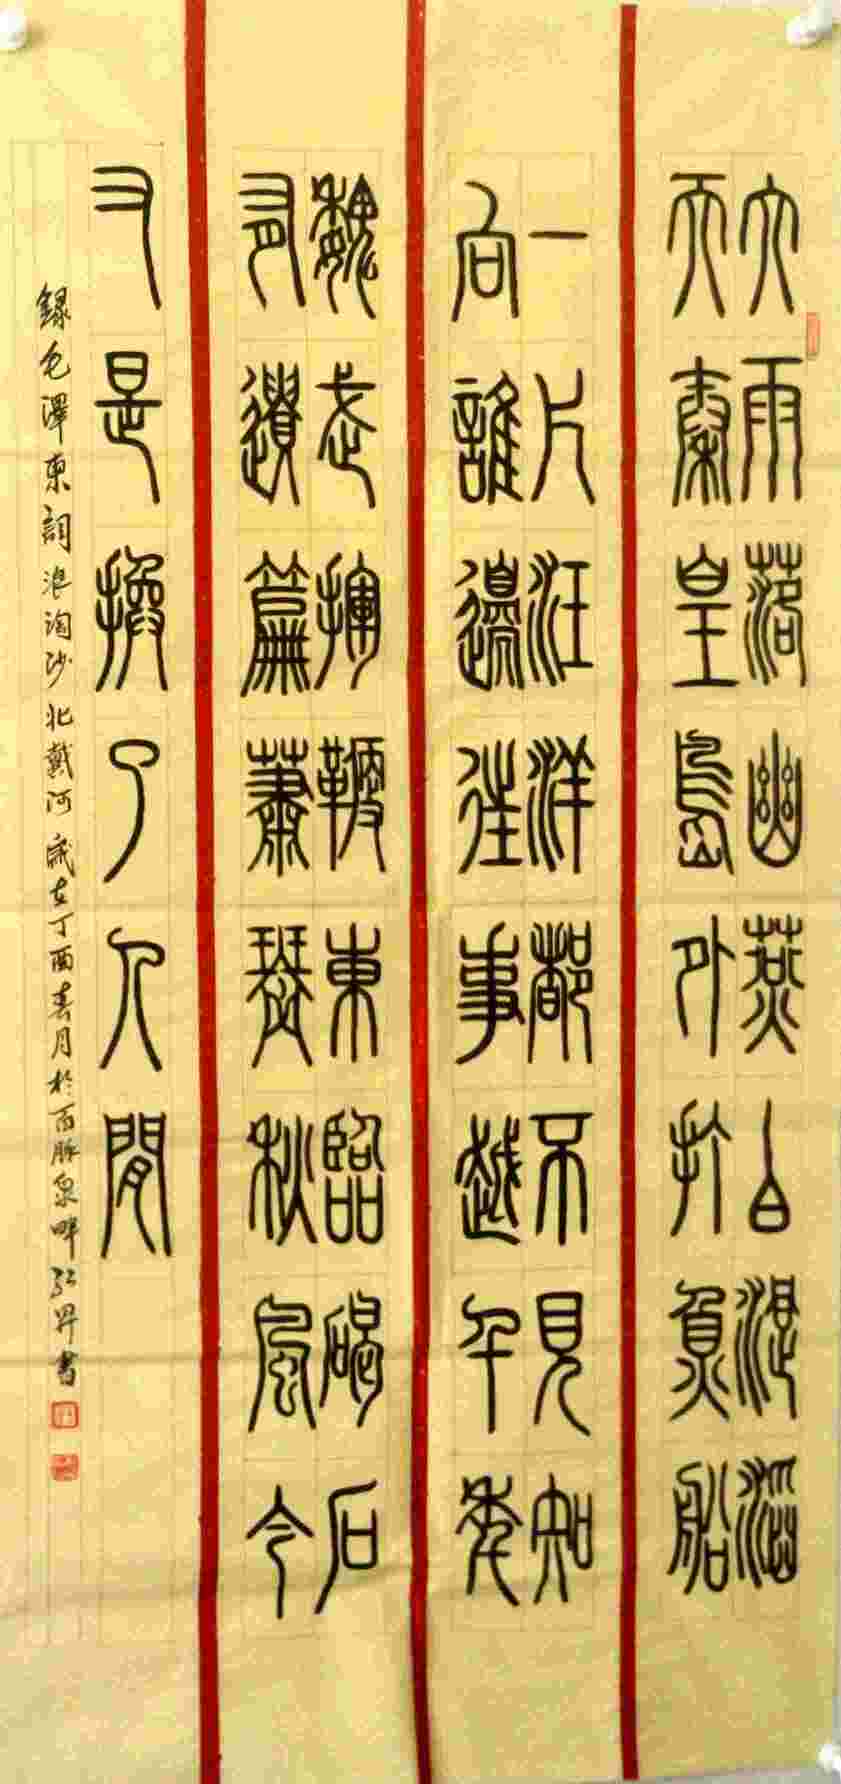 大雨落幽燕白浪滔
天秦皇島外打魚船
一片汪洋都不見知
向誰邊往事越千年
魏武揮鞭東臨碣石
有遺篇蕭瑟秋風今
又是換了人間
錄毛澤東詞浪淘沙北戴河歲在丁酉春月於百脈泉畔弘昇書